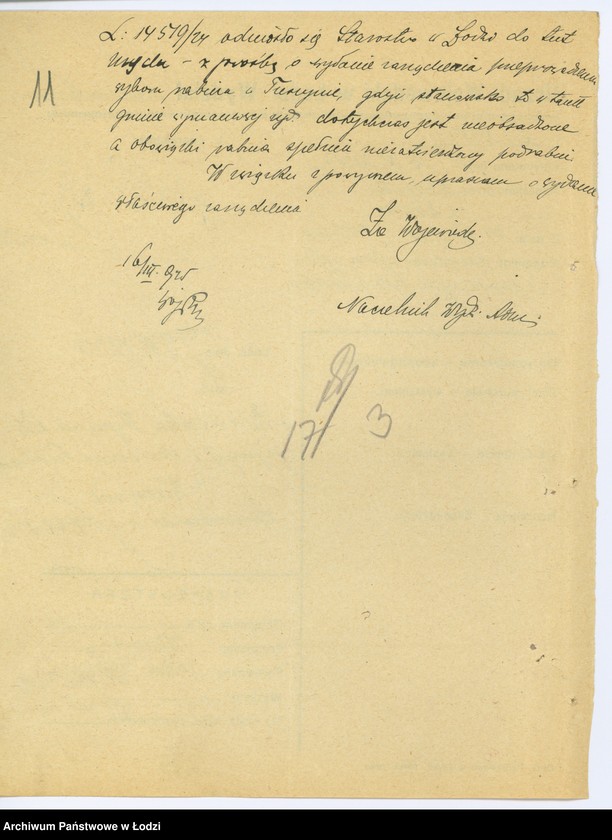 L: 14579/24 odniosło się Starostwo w Łodzi do tut
Urzędu – z prośbą o wydanie zarządzenia przeprowadzenia
wyboru rabina w Tuszynie, gdyż stanowisko to w tamt.
gminie wyznaniowej żyd. dotychczas jest nieobsadzone
a obowiązki rabina spełnia niezatwierdzony podrabin.
W związku z powyższem, upraszam o wydanie
właściwego zarządzenia
11
Za Wojewodę.
16/III. 925
Naczelnik Wydz. Adm.
17/3
Archiwum Państwowe w Łodzi